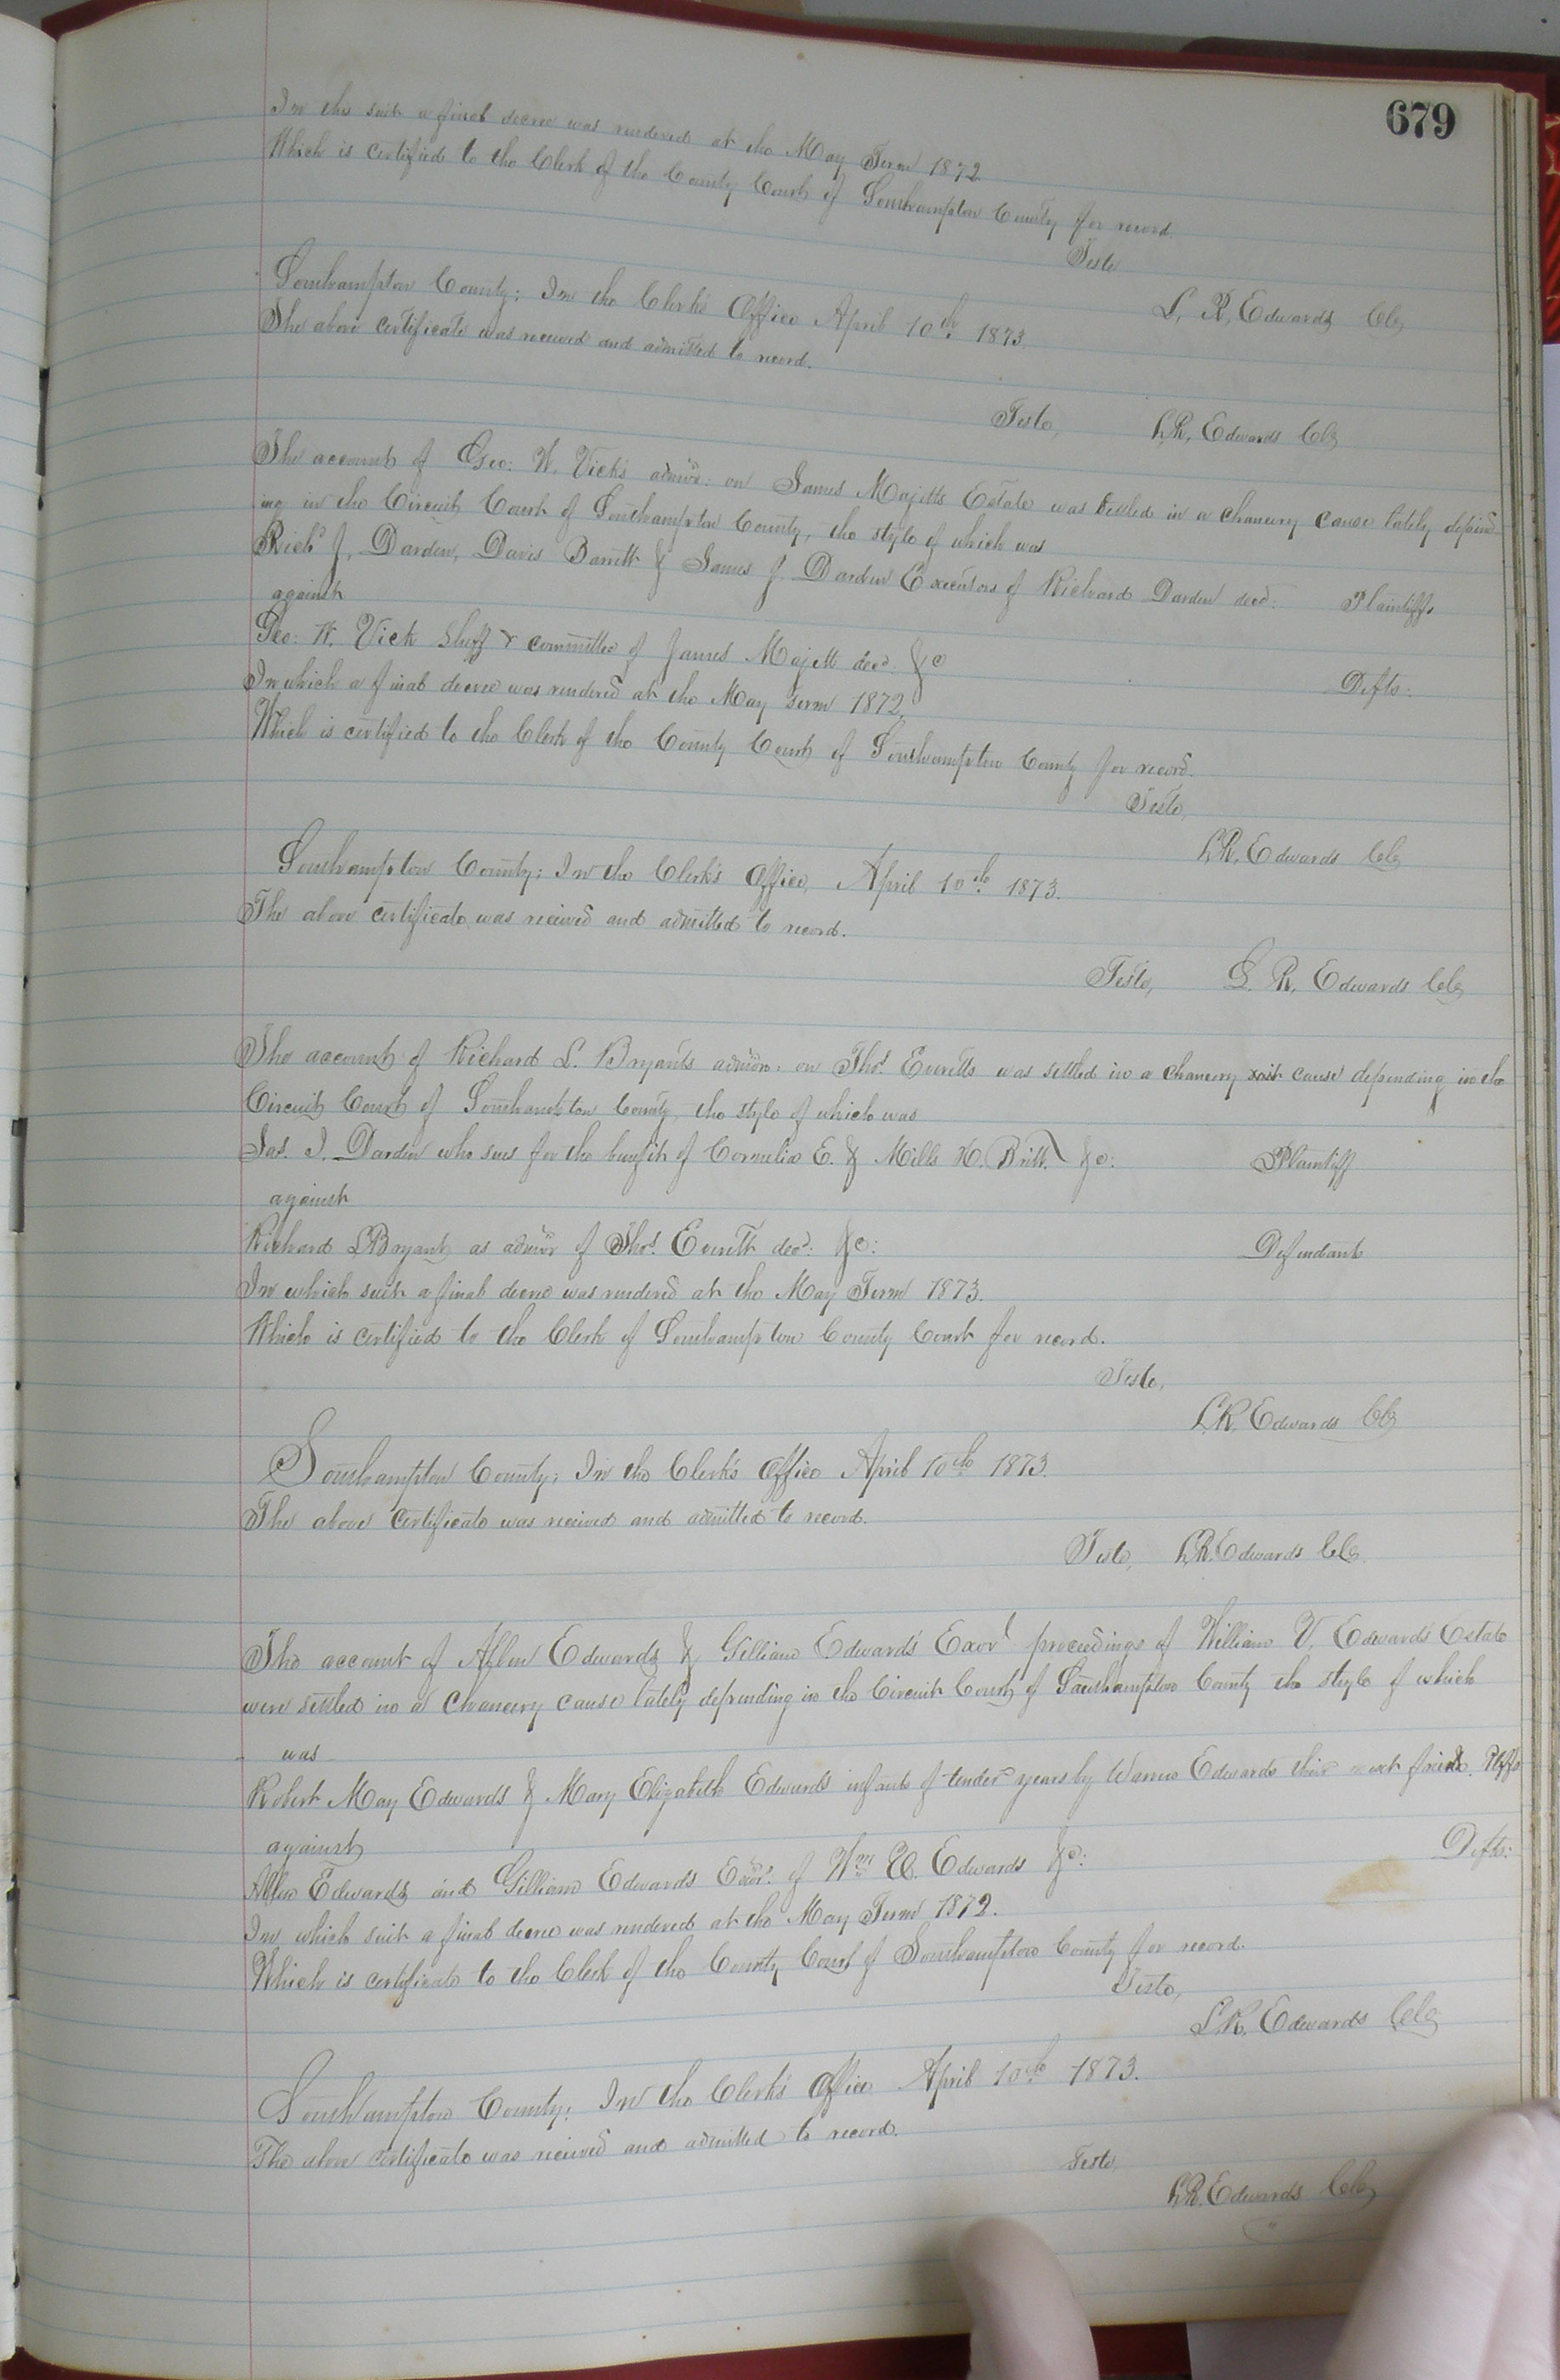 679
In the suit a final decree was rendered at the May Term 1872
Which is certified to the Clerk of the County Court of Southampton County for record.
Teste
L. R. Edwards Clk
Southampton County; In the Clerk's Office April 10th 1873.
The above certificate was received and admitted to record.
Teste, L.R. Edwards Clk
The account of Geo: W. Vick's admr: on James Majetts Estate was settled in a chancery cause lately depend
ing in the Circuit Court of Southampton County, the style of which was
Richd J. Darden, Davis Barrett & James J. Darden Executors of Richard Darden decd: Plaintiffs
against
Geo: W. Vick Shff & committee of James Majett decd. &c
Defts:
In which a final decree was rendered at the May Term 1872.
Which is certified to the Clerk of the County Court of Southampton County for record.
Teste,
L.R. Edwards Clk
Southampton County; In the Clerk's Office, April 10th 1873.
The above certificate was received and admitted to record.
Teste, L. R. Edwards Clk
The account of Richard L. Bryant's admon: on Thos. Everetts was settled in a chancery suit cause depending in the
Circuit Court of Southampton County, the style of which was
Jas. J. Darden who sues for the benefit of Cornelia E. & Mills H. Britt. &c: Plaintiff
against
Richard L Bryant as admor of Thos. Everett decd: &c: Defendant
In which suit a final decree was rendered at the May Term 1873.
Which is certified to the Clerk of Southampton County Court for record.
Teste,
L.R. Edwards Clk
Southampton County; In the Clerk's Office April 10th 1873.
The above certificate was received and admitted to record.
Teste, L.R. Edwards Clk.
The account of Allen Edwards & Gilliam Edwards' Exors proceedings of William Edwards Estate
were settled in a chancery cause lately depending in the Circuit Court of Southampton County the style of which
was
Robert May Edwards & Mary Elizabeth Edwards infants of tender years by Edwards their next friend. Pltffs
against
Allen Edwards and Gilliam Edwards Exors. of Wm Edwards &c: Defts:
In which suit a final decree was rendered at the May Term 1872.
Which is certificate to the Clerk of the County Court of Southampton County for record.
Teste,
L.R. Edwards Clk
Southampton County; In the Clerk's Office April 10th 1873.
The above certificate was received and admitted to record.
Teste,
L.R. Edwards Clk